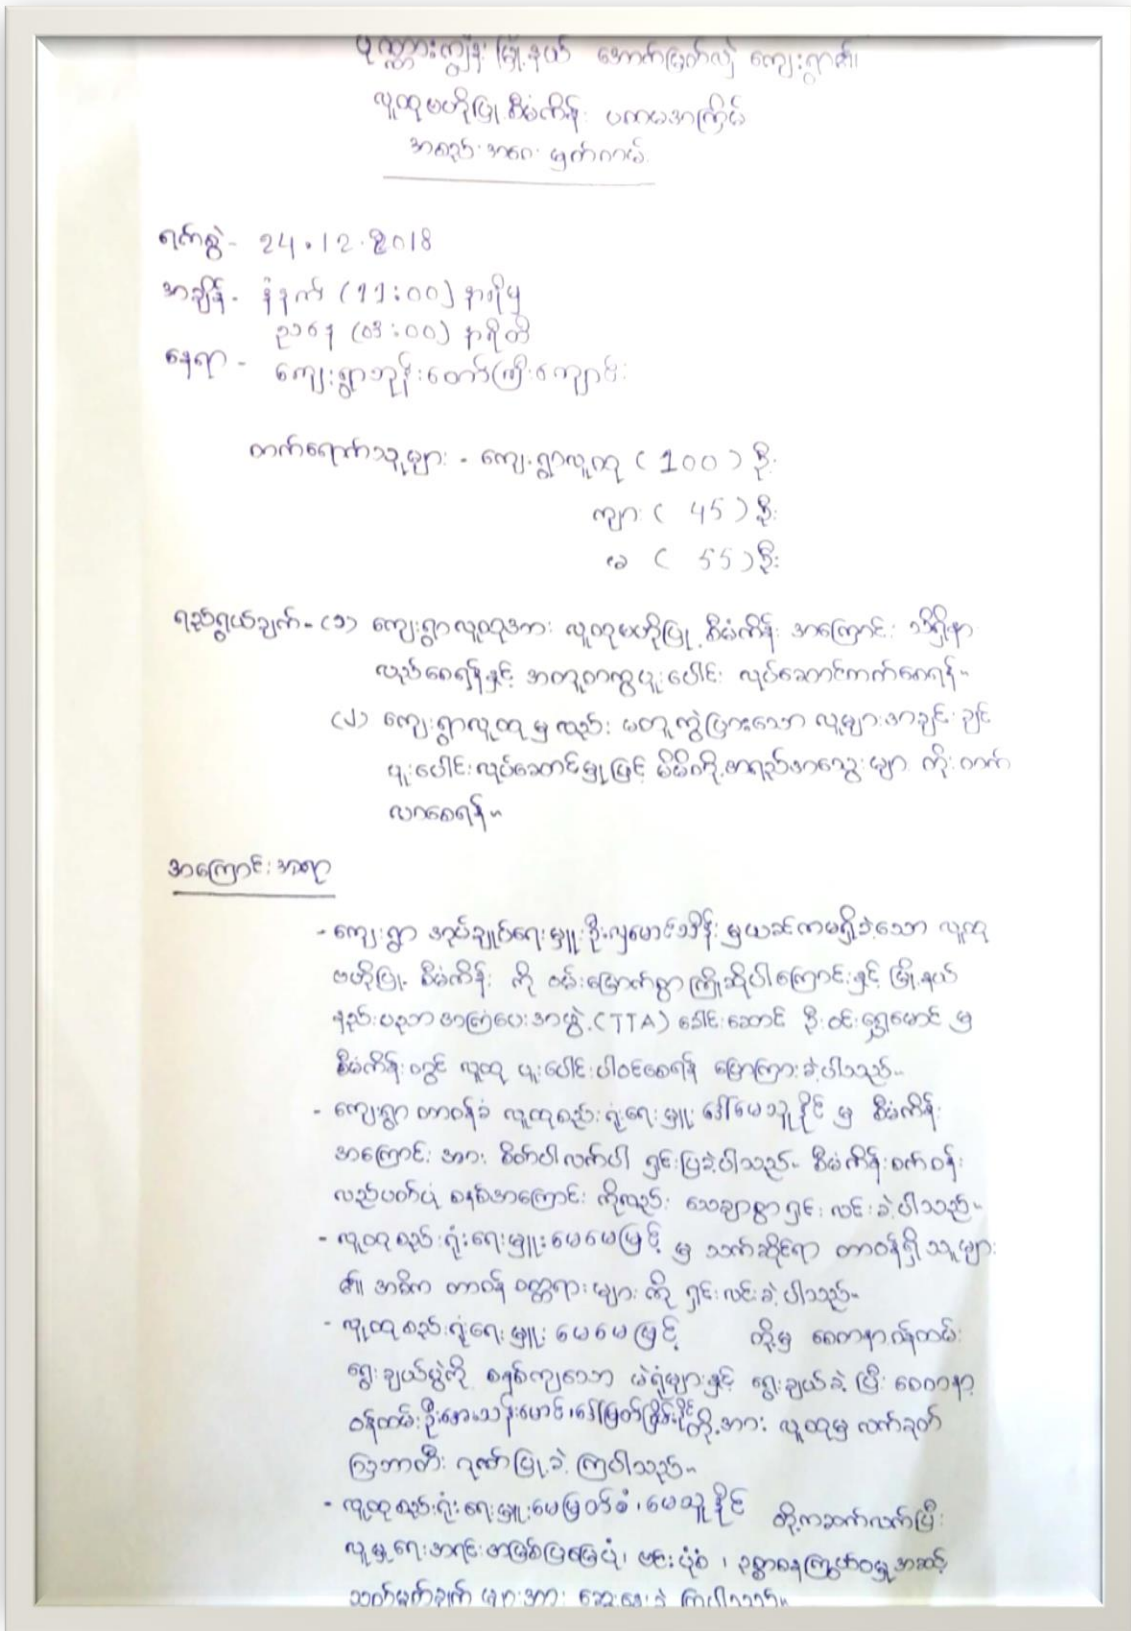 ပုဏ္ဏားကျွန်း မြို့နယ် အောက်မြတ်လှဲ ကျေးရွာ၏
လူထုဗဟိုပြု စီမံကိန်း ပထမအကြိမ်
အစည်းအဝေး မှတ်တမ်း
ရက်စွဲ - 24.12.2018
အချိန် - နံနက် (11:00) နာရီမှ
ညနေ (03:00) နာရီထိ
နေရာ - ကျေးရွာဘုန်းတော်ကြီးကျောင်း
တက်ရောက်သူများ - ကျေးရွာလူထု (100) ဦး
ကျား (45) ဦး
မ (55) ဦး
ရည်ရွယ်ချက် - (၁) ကျေးရွာလူထုအား လူထုဗဟိုပြု စီမံကိန်း အကြောင်း သိရှိနား
လည်စေရန်နှင့် အတူတကွပူးပေါင်း လုပ်ဆောင်တတ်စေရန်။
(၂) ကျေးရွာလူထုမှလည်း မတူကွဲပြားသော လူများအချင်းချင်း
ပူးပေါင်းလုပ်ဆောင်မှုဖြင့် မိမိတို့အရည်အသွေးများ တိုးတက်
လာစေရန်။
အကြောင်းအရာ
- ကျေးရွာ အုပ်ချုပ်ရေးမှူး ဦးလှမောင်သိန်း မှယခင်ကမရှိခဲ့သော လူထု
ဗဟိုပြု စီမံကိန်း ကို ဝမ်းမြောက်စွာကြိုဆိုပါကြောင်းနှင့် မြို့နယ်
နည်းပညာအကြံပေးအဖွဲ့ (TTA) ခေါင်းဆောင် ဦးဝင်းရွှေမောင် မှ
စီမံကိန်းတွင် လူထု ပူးပေါင်းပါဝင်စေရန် ပြောကြားခဲ့ပါသည်။
- ကျေးရွာ တာဝန်ခံ လူထုစည်းရုံးရေးမှူး ဒေါ်မေသူနိုင် မှ စီမံကိန်း
အကြောင်း အား စိတ်ပါလက်ပါ ရှင်းပြခဲ့ပါသည်။ စီမံကိန်းစက်ဝန်း
လည်ပတ်ပုံ စနစ်အကြောင်း ကိုလည်း သေချာစွာရှင်းလင်းခဲ့ပါသည်။
- လူထုစည်းရုံးရေးမှူးမေမေမြင့် မှ သက်ဆိုင်ရာ တာဝန်ရှိသူများ
၏ အဓိက တာဝန် ဝတ္တရားများ ကို ရှင်းလင်းခဲ့ပါသည်။
- လူထုစည်းရုံးရေးမှူး မေမေမြင့် တို့မှ စေတနာ့ဝန်ထမ်း
ရွေးချယ်ပွဲကို စနစ်ကျသော မဲရုံများနှင့် ရွေးချယ်ခဲ့ပြီး စေတနာ့
ဝန်ထမ်း တို့အား လူထုမှ လက်ခုတ်
သြဘာတီး ဂုဏ်ပြုခဲ့ကြပါသည်။
- လူထုစည်းရုံးရေးမှူးမေမြတ်စံ၊ မေသူနိုင် တို့ကဆက်လက်ပြီး
လူမှုရေးအရင်းအမြစ်ပြမြေပုံ၊ ဗင်းပုံစံ၊ ဥစ္စာဓနကြွယ်ဝမှုအဆင့်
သတ်မှတ်ချက် များအား ဆွေးနွေးခဲ့ ကြပါသည်။